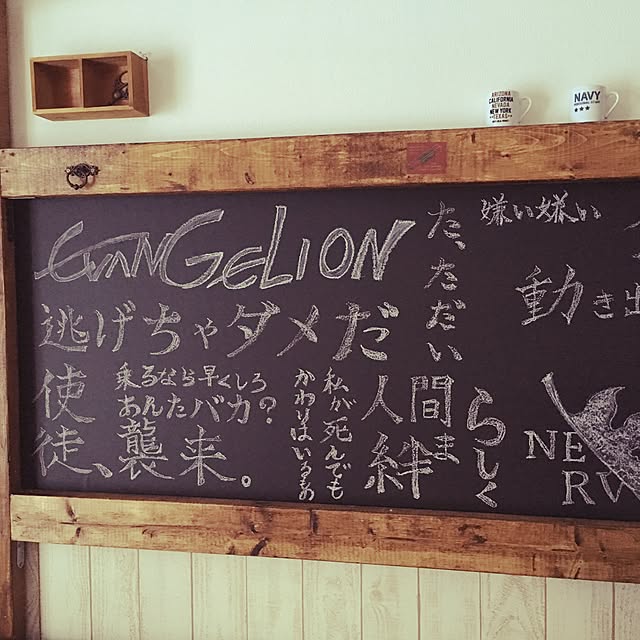 ARIZONA
CALIFORNIA
NEVADA
NEW YORK
TEXAS
NAVY
EVANGELION
た、ただいま
嫌い嫌い
動き出
逃げちゃダメだ
使徒、襲来。
乗るなら早くしろ
あんたバカ?
私が死んでも
かわりはいるもの
人間
絆
らしく
NE
RV